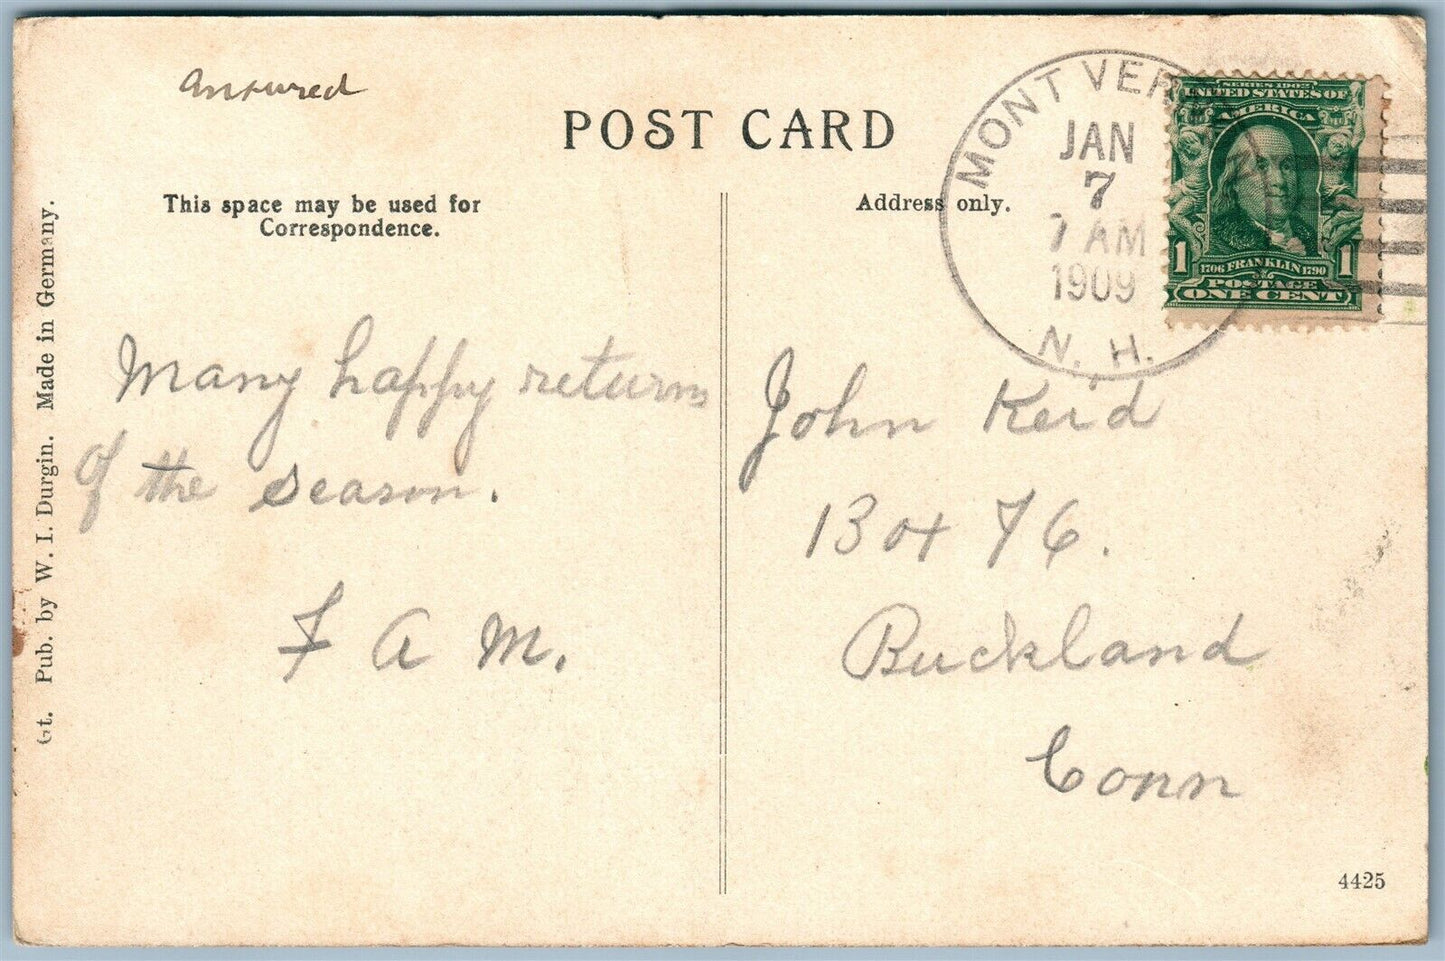 Answered
POST CARD
This space may be used for
Correspondence.
Address only.
MONT VER
JAN
7
7 AM
1909
N. H.
SERIES 1902
UNITED STATES OF
AMERICA
1706 FRANKLIN 1790
1 1
POSTAGE
ONE CENT
Many happy returns
of the season.
F A M.
John Reid
Box 76.
Buckland
Conn
Gt. Pub. by W. I. Durgin. Made in Germany.
4425